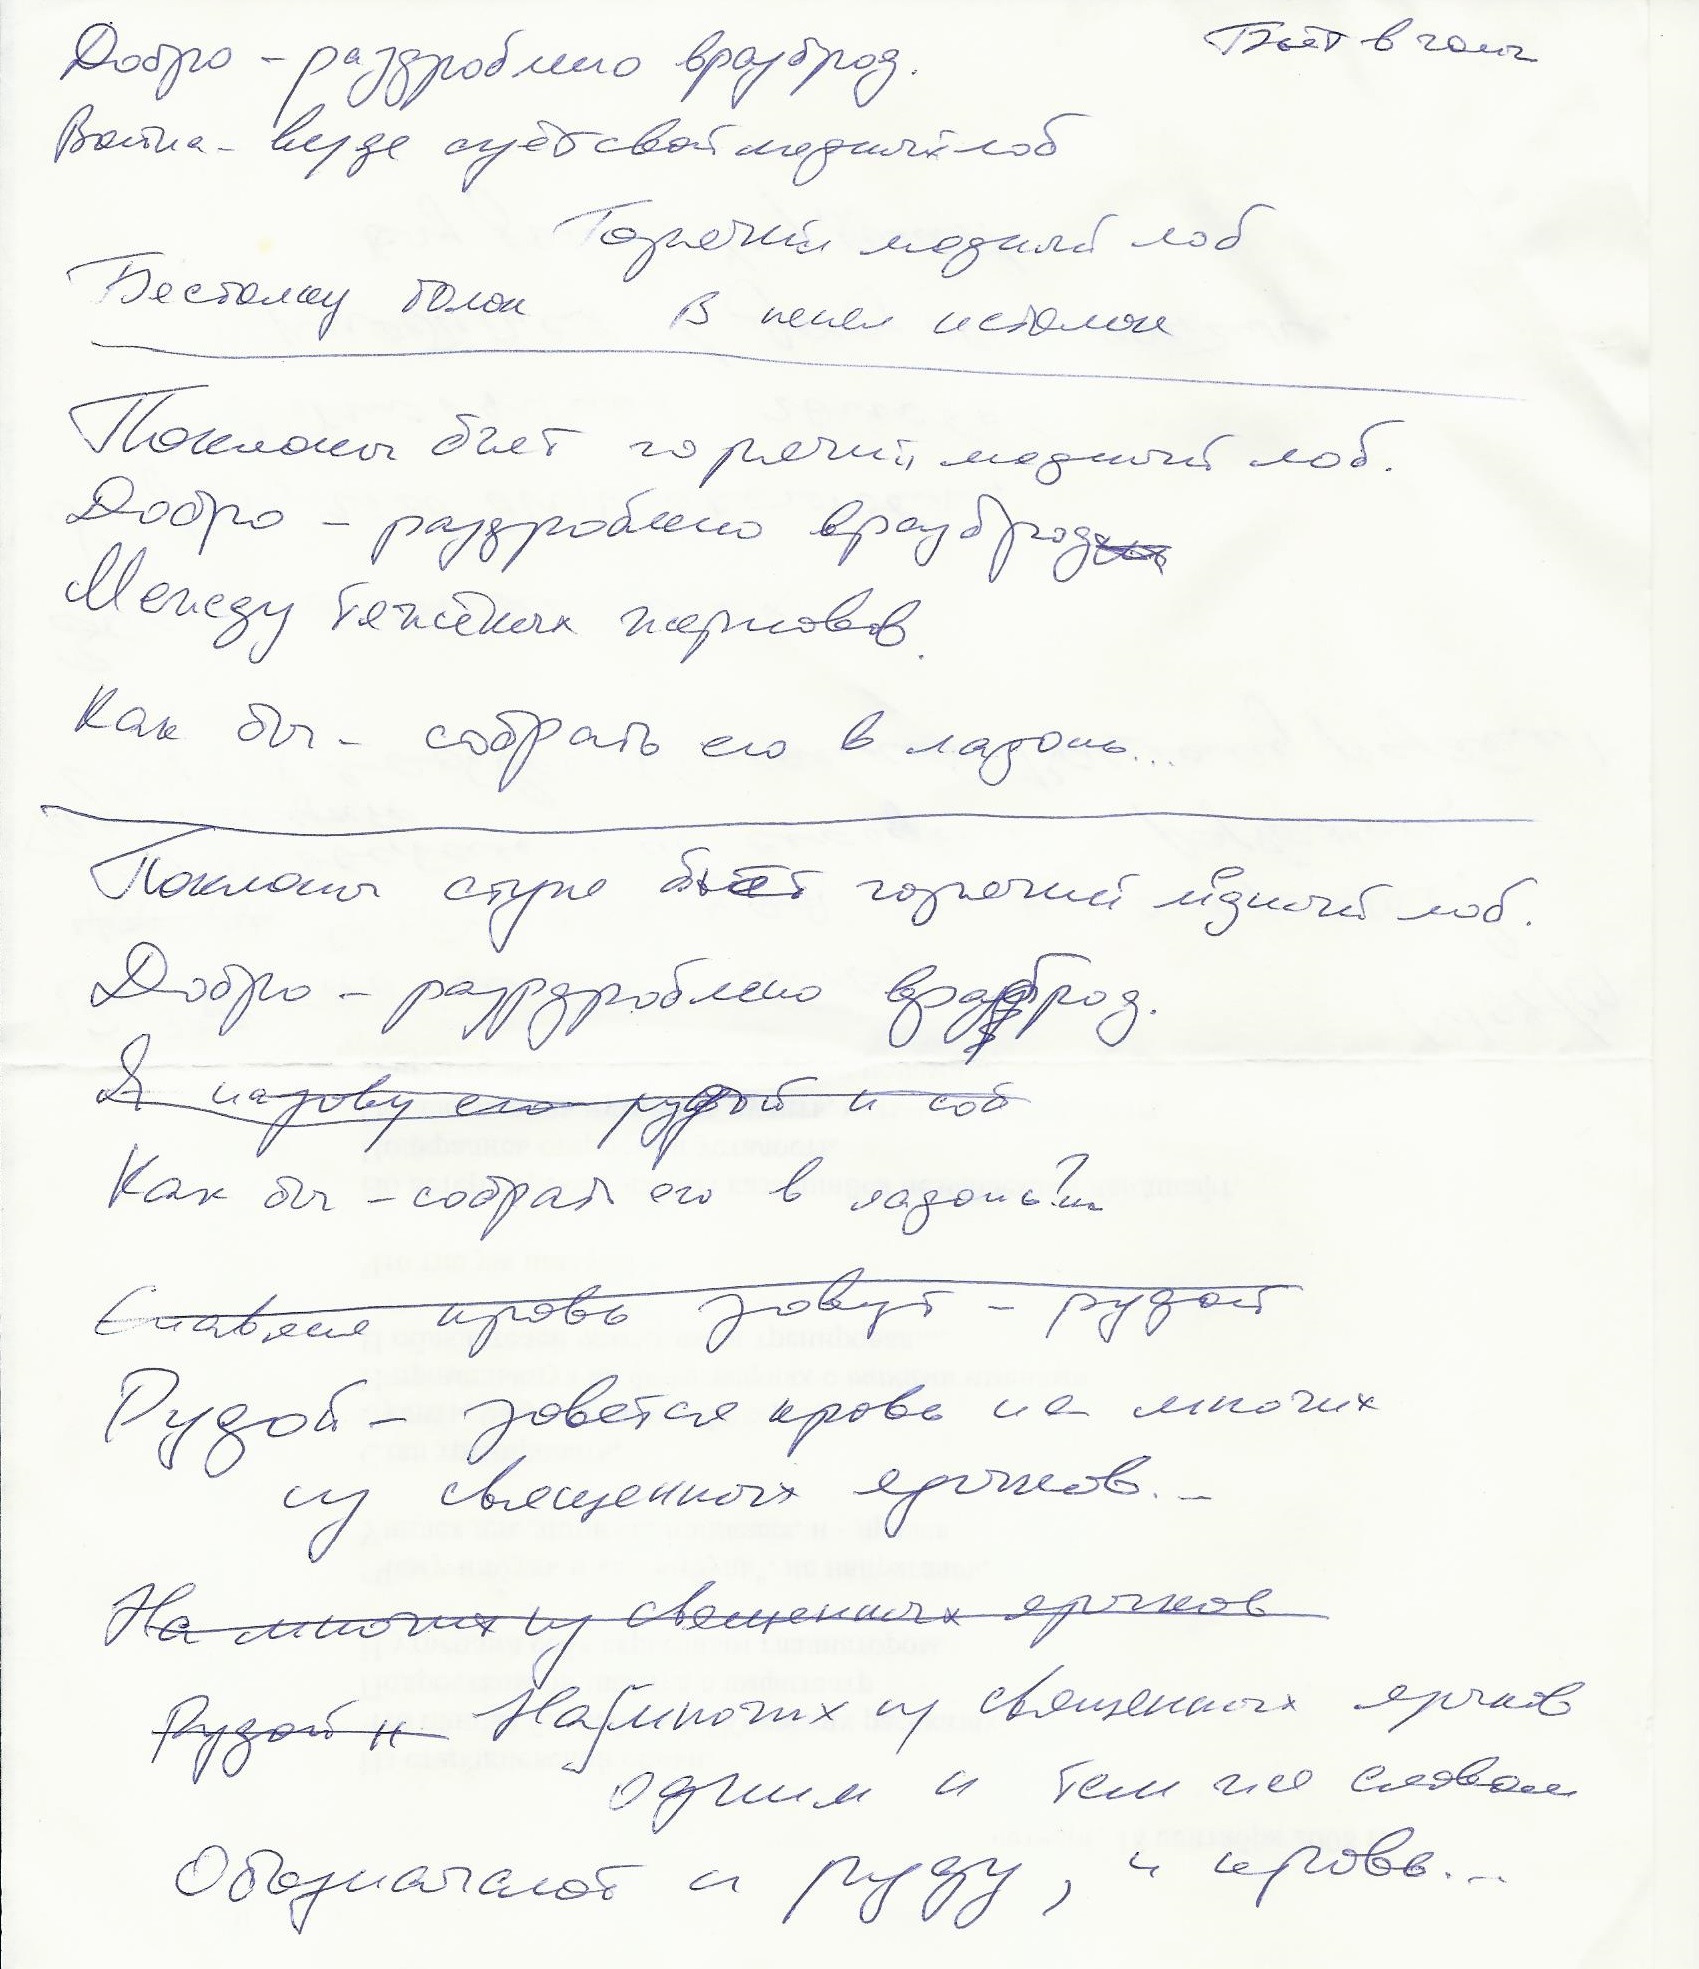 Добро – раздроблено вразброд.
Бьёт в
Война – везде суёт свой медный лоб
Горячий медный лоб
Бестолку толок В пепел истолок
Поклоны бьет горячий медный лоб.
Добро – раздроблено вразброд
Между тяжёлых жерновов.
Как бы – собрать его в ладонь...
Поклоны ступе бьёт горячий медный лоб.
Добро – раздроблено вразброд.
Я назову его рудой и соб
Как бы – собрать его в ладонь?..
Славяне кровь зовут – рудой
Рудой – зовется кровь на многих
из священных языков...
На многих из священных языков
Рудой и На многих из священных языков
одним и тем же словом
Обозначают и руду, и кровь...